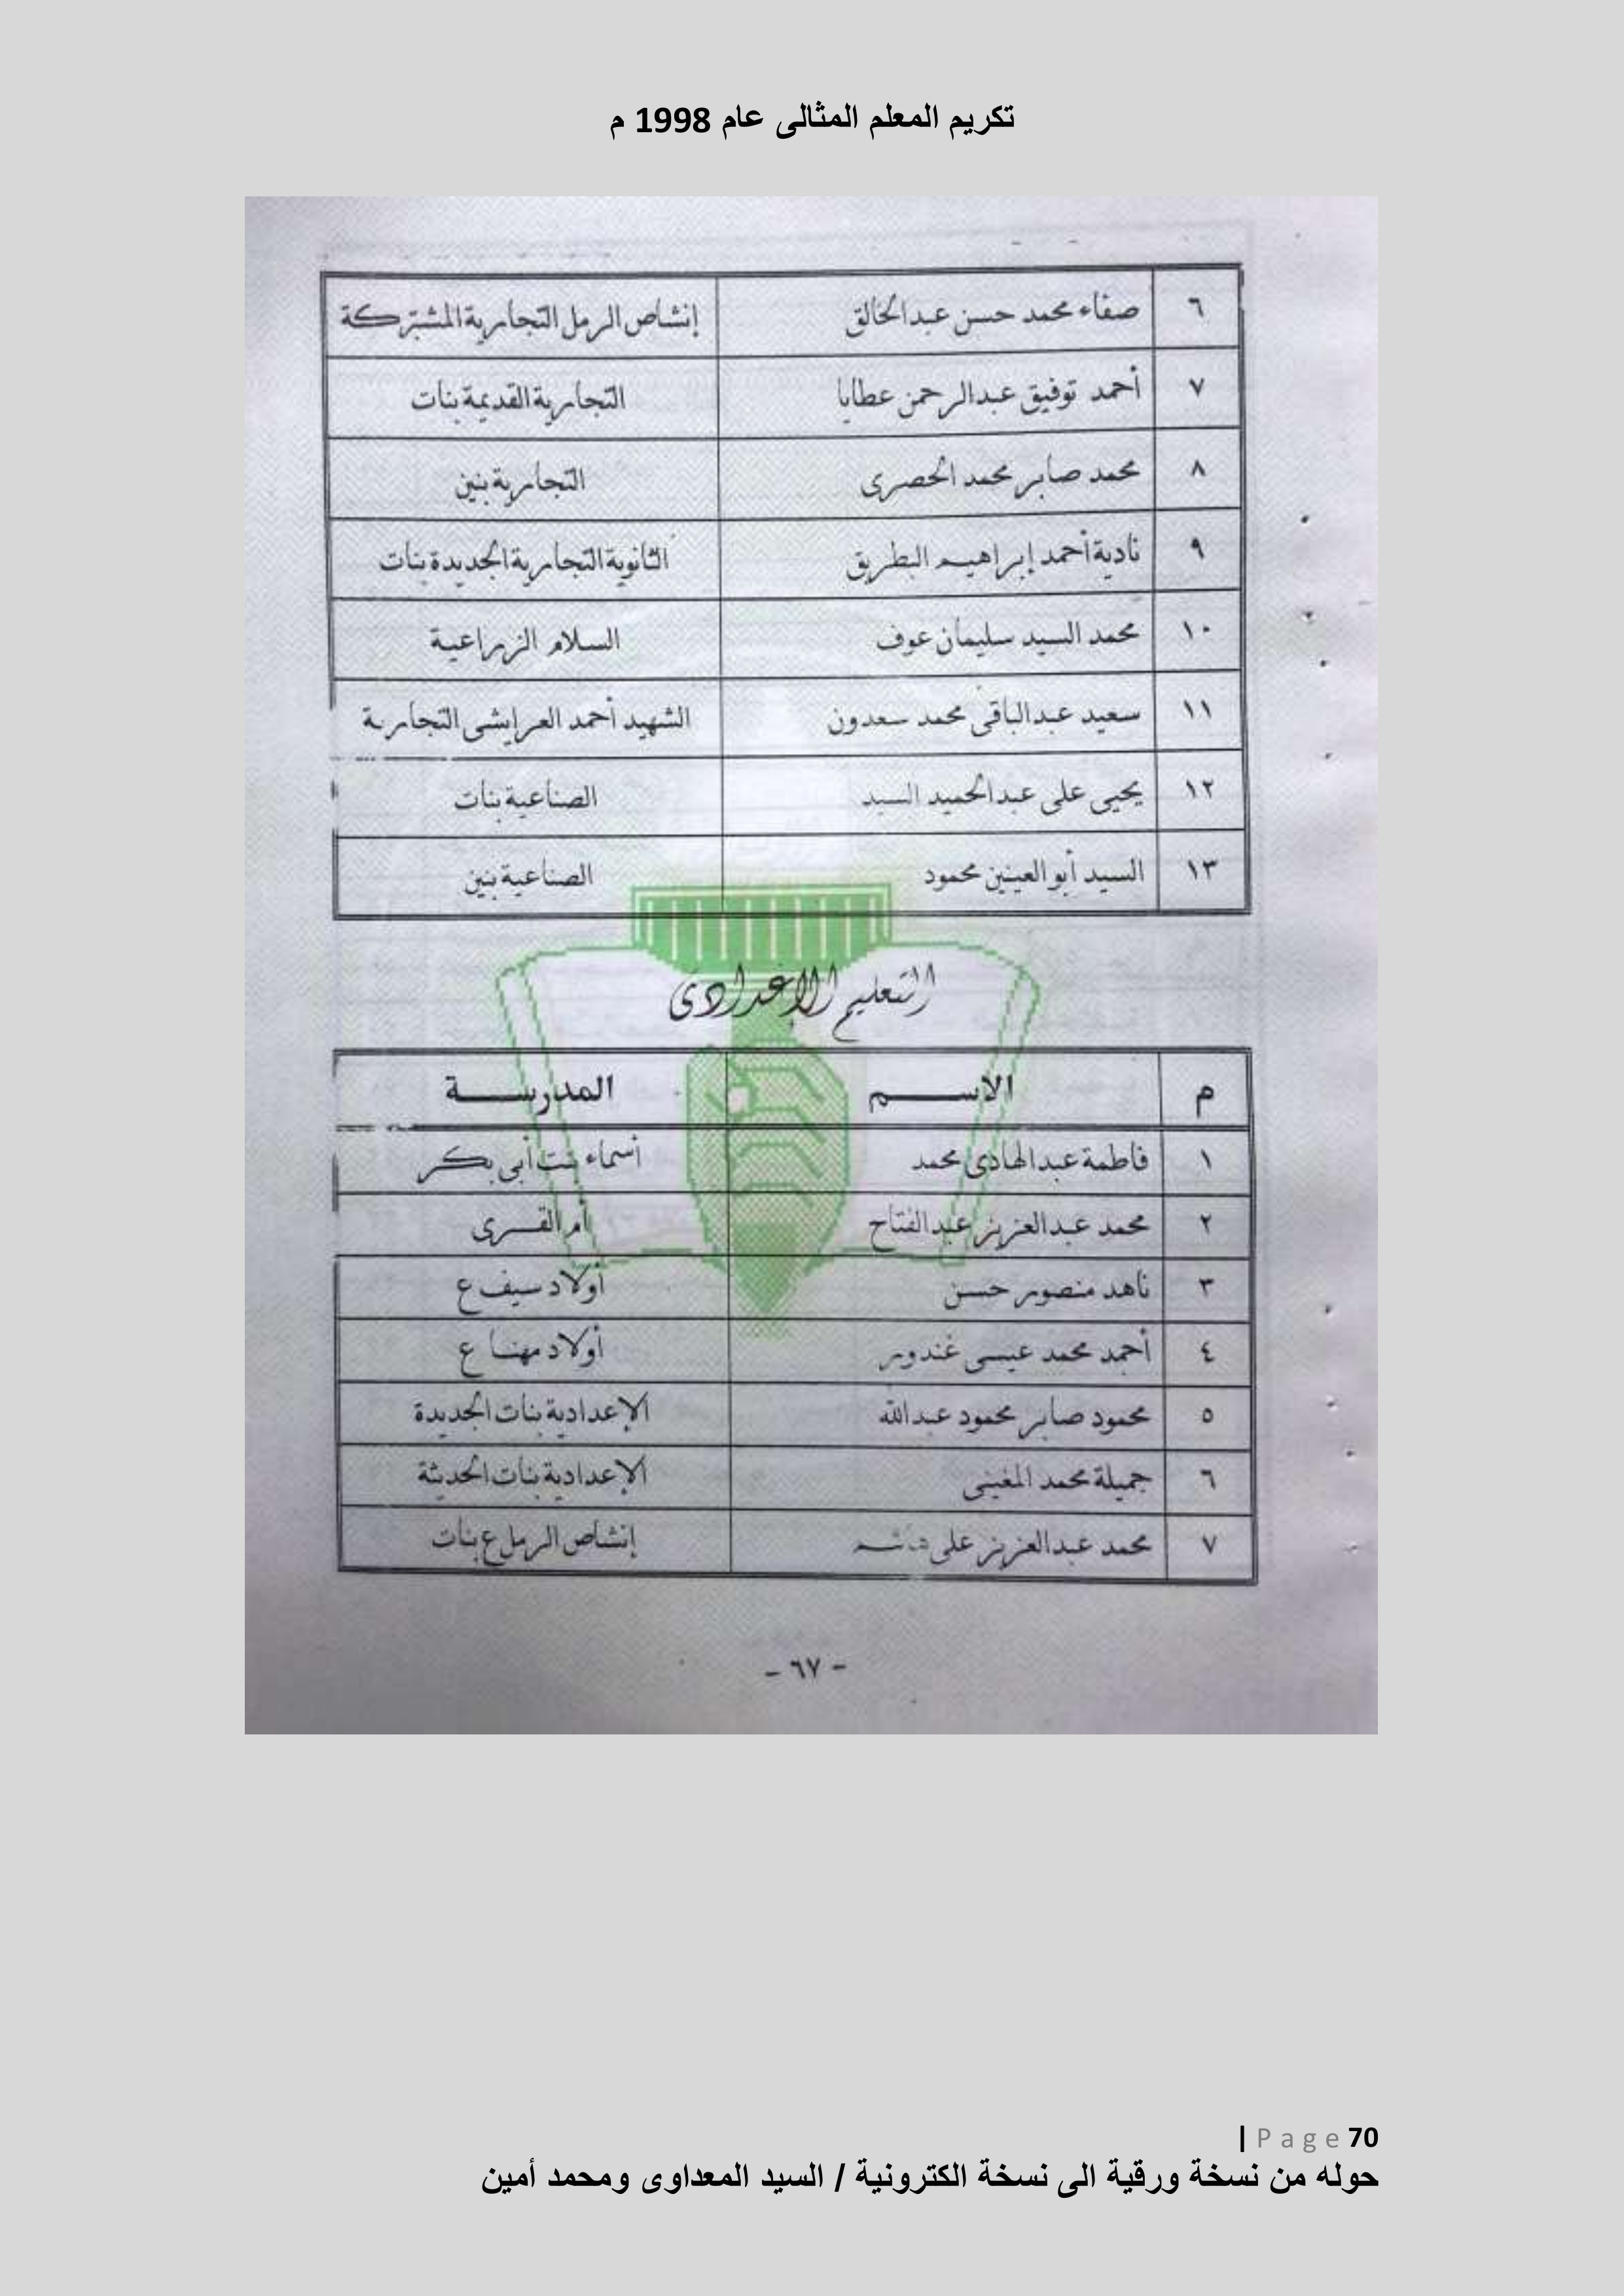 تكريم المعلم المثالى عام 1998 م
٦ صفاء محمد حسن عبدالخالق إنشاص الرمل التجارية المشتركة
٧ أحمد توفيق عبدالرحمن عطايا التجارية القديمة بنات
٨ محمد صابر محمد الحصرى التجارية بنين
٩ نادية أحمد إبراهيم البطريق الثانوية التجارية الجديدة بنات
١٠ محمد السيد سليمان عوف السلام الزراعية
١١ سعيد عبدالباقى محمد سعدون الشهيد أحمد العرايشى التجارية
١٢ يحيى على عبدالحميد السيد الصناعية بنات
١٣ السيد أبو العينين محمود الصناعية بنين
التعليم الإعدادى
م الاسم المدرسة
١ فاطمة عبدالهادى محمد أسماء بنت أبى بكر
٢ محمد عبدالعزيز عبدالفتاح أم القرى
٣ ناهد منصور حسن أولاد سيف ع
٤ أحمد محمد عيسى غندور أولاد مهنا ع
٥ محمود صابر محمود عبدالله الإعدادية بنات الجديدة
٦ جميلة محمد المغينى الإعدادية بنات الحديثة
٧ محمد عبدالعزيز على إنشاص الرمل ع بنات
- ٦٧ -
| Page 70
حوله من نسخة ورقية الى نسخة الكترونية / السيد المعداوى ومحمد أمين